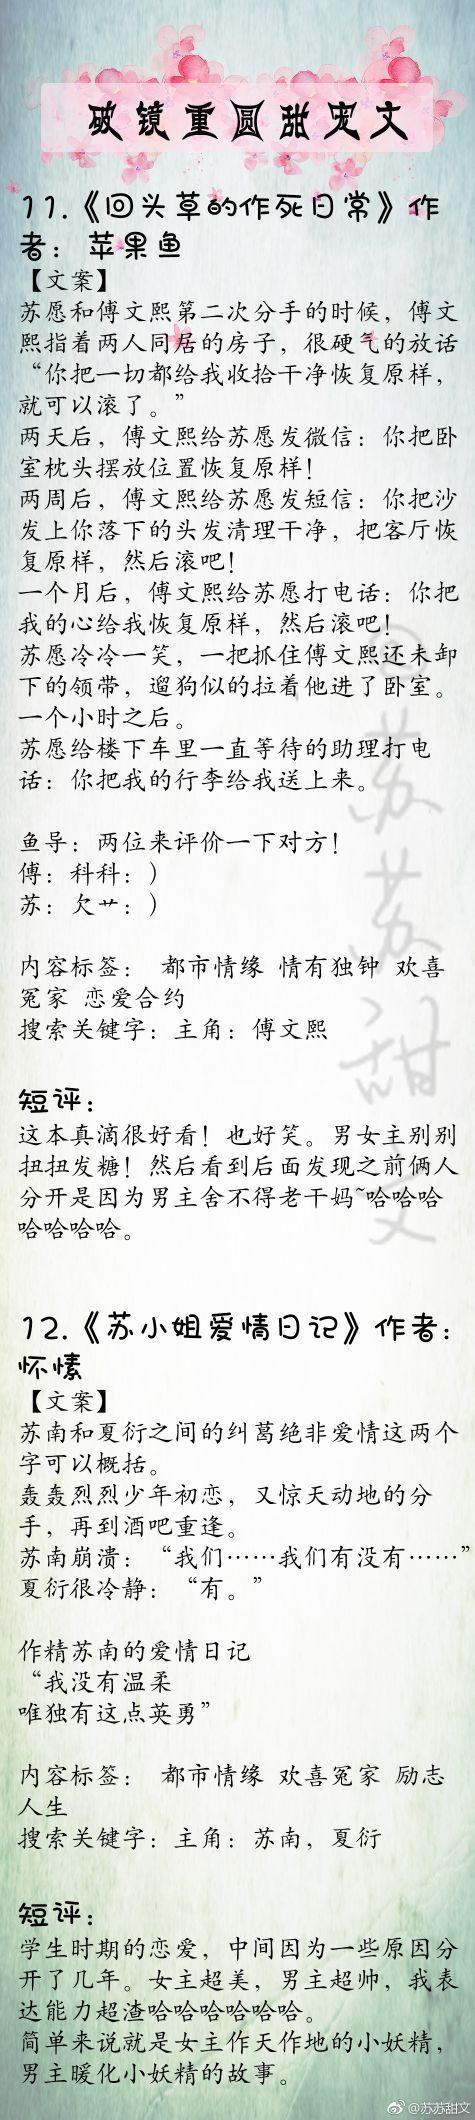 破镜重圆甜宠文
11.《回头草的作死日常》作
者：苹果鱼
【文案】
苏愿和傅文熙第二次分手的时候，傅文
熙指着两人同居的房子，很硬气的放话
“你把一切都给我收拾干净恢复原样，
就可以滚了。”
两天后，傅文熙给苏愿发微信：你把卧
室枕头摆放位置恢复原样！
两周后，傅文熙给苏愿发短信：你把沙
发上你落下的头发清理干净，把客厅恢
复原样，然后滚吧！
一个月后，傅文熙给苏愿打电话：你把
我的心给我恢复原样，然后滚吧！
苏愿冷冷一笑，一把抓住傅文熙还未卸
下的领带，遛狗似的拉着他进了卧室。
一个小时之后。
苏愿给楼下车里一直等待的助理打电
话：你把我的行李给我送上来。
鱼导：两位来评价一下对方！
傅：科科：）
苏：欠艹：）
内容标签： 都市情缘 情有独钟 欢喜
冤家 恋爱合约
搜索关键字：主角：傅文熙
短评：
这本真滴很好看！也好笑。男女主别别
扭扭发糖！然后看到后面发现之前俩人
分开是因为男主舍不得老干妈~哈哈哈
哈哈哈哈。
12.《苏小姐爱情日记》作者：
怀愫
【文案】
苏南和夏衍之间的纠葛绝非爱情这两个
字可以概括。
轰轰烈烈少年初恋，又惊天动地的分
手，再到酒吧重逢。
苏南崩溃：“我们……我们有没有……”
夏衍很冷静：“有。”
作精苏南的爱情日记
“我没有温柔
唯独有这点英勇”
内容标签： 都市情缘 欢喜冤家 励志
人生
搜索关键字：主角：苏南，夏衍
短评：
学生时期的恋爱，中间因为一些原因分
开了几年。女主超美，男主超帅，我表
达能力超渣哈哈哈哈哈哈。
简单来说就是女主作天作地的小妖精，
男主暖化小妖精的故事。
@苏苏甜文
@苏苏甜文